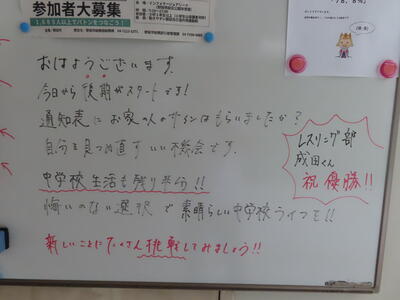 参加者大募集
1,689人以上でバトンをつなごう!
78,8%
おはようございます。
今日から後期がスタートです!
通知表にお家の人のサインはもらいましたか?
自分を見つめ直すいい機会です。
中学校生活も残り半分!!
悔いのない選択で素晴らしい中学校ライフを!!
新しいことにたくさん挑戦してみましょう!!
レスリング部
成田くん
祝優勝!!